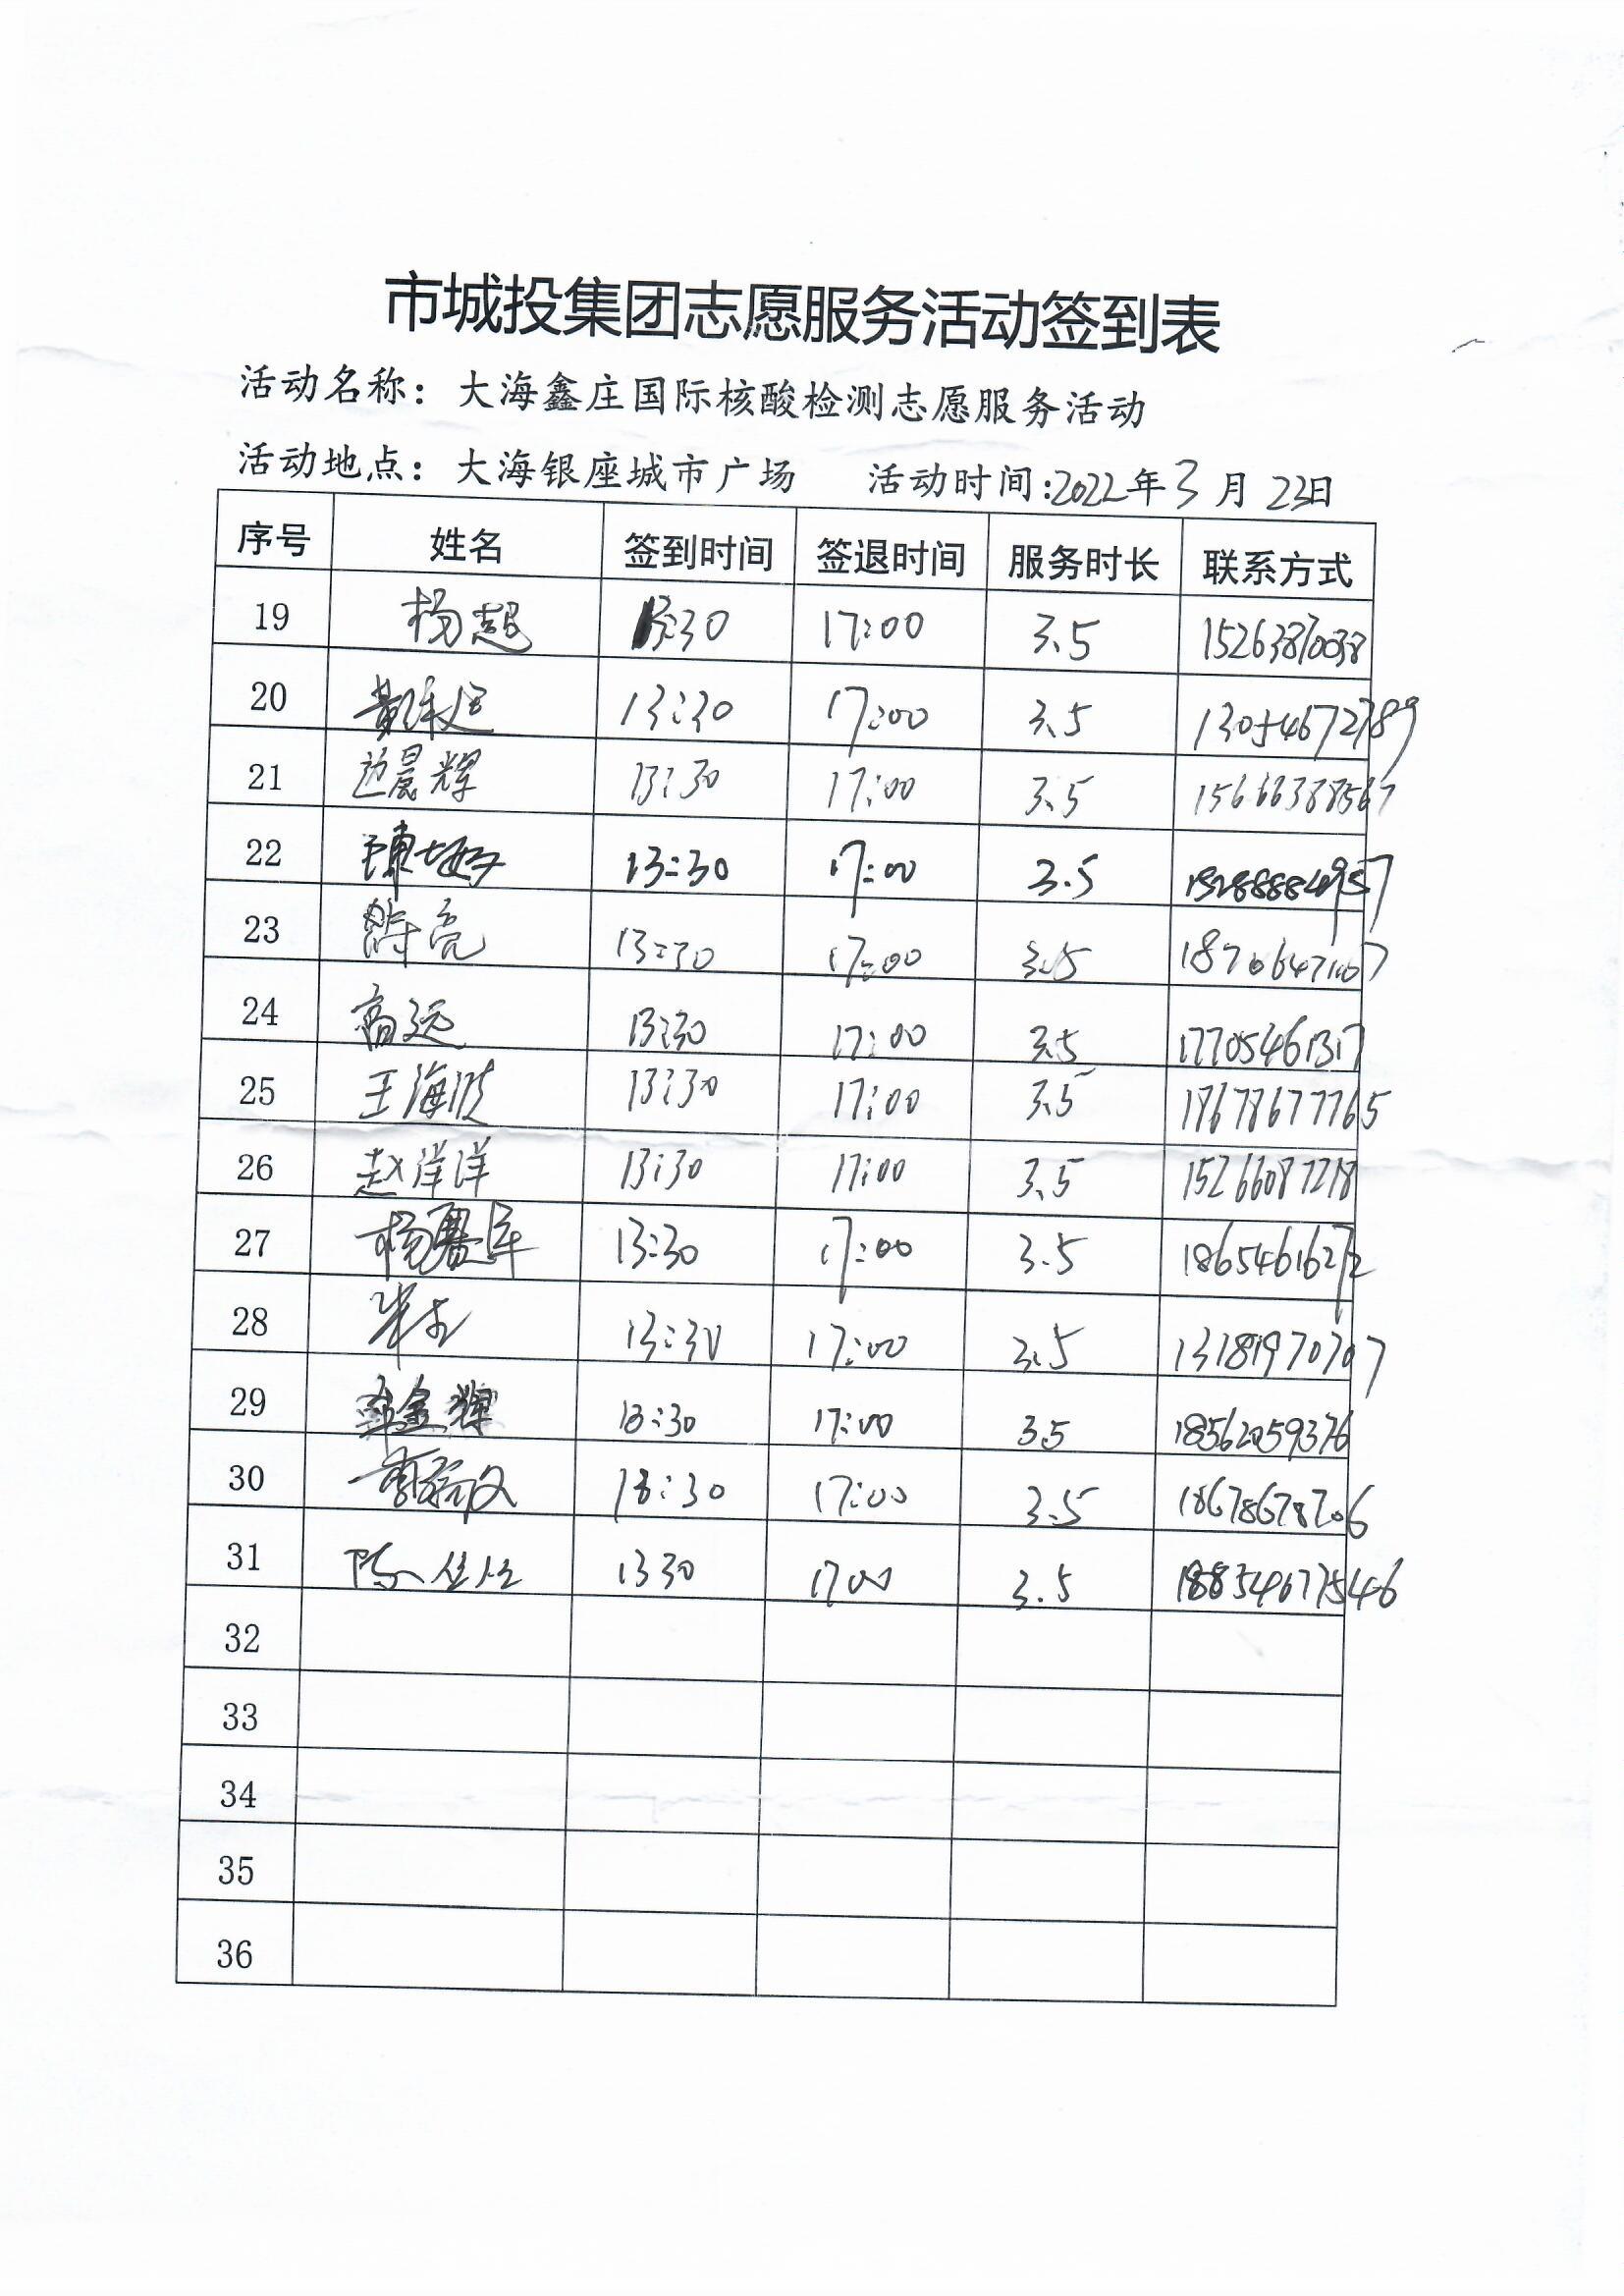 市城投集团志愿服务活动签到表
活动名称：大海鑫庄国际核酸检测志愿服务活动
活动地点：大海银座城市广场 活动时间:2022年3月23日
序号 姓名 签到时间 签退时间 服务时长 联系方式
19 杨超 13:30 17:00 3.5 15263870038
20 13:30 17:00 3.5 13054672789
21 边晨辉 13:30 17:00 3.5 15666388567
22 13:30 17:00 3.5
23 薛亮 13:30 17:00 3.5
24 高远 13:30 17:00 3.5 17705461317
25 王海波 13:30 17:00 3.5 18678677765
26 赵洋洋 13:30 17:00 3.5 15266087278
27 13:30 17:00 3.5 18654616272
28 13:30 17:00 3.5 13181970707
29 13:30 17:00 3.5 18562059376
30 13:30 17:00 3.5 18678678706
31 13 30 17 00 3.5
32
33
34
35
36